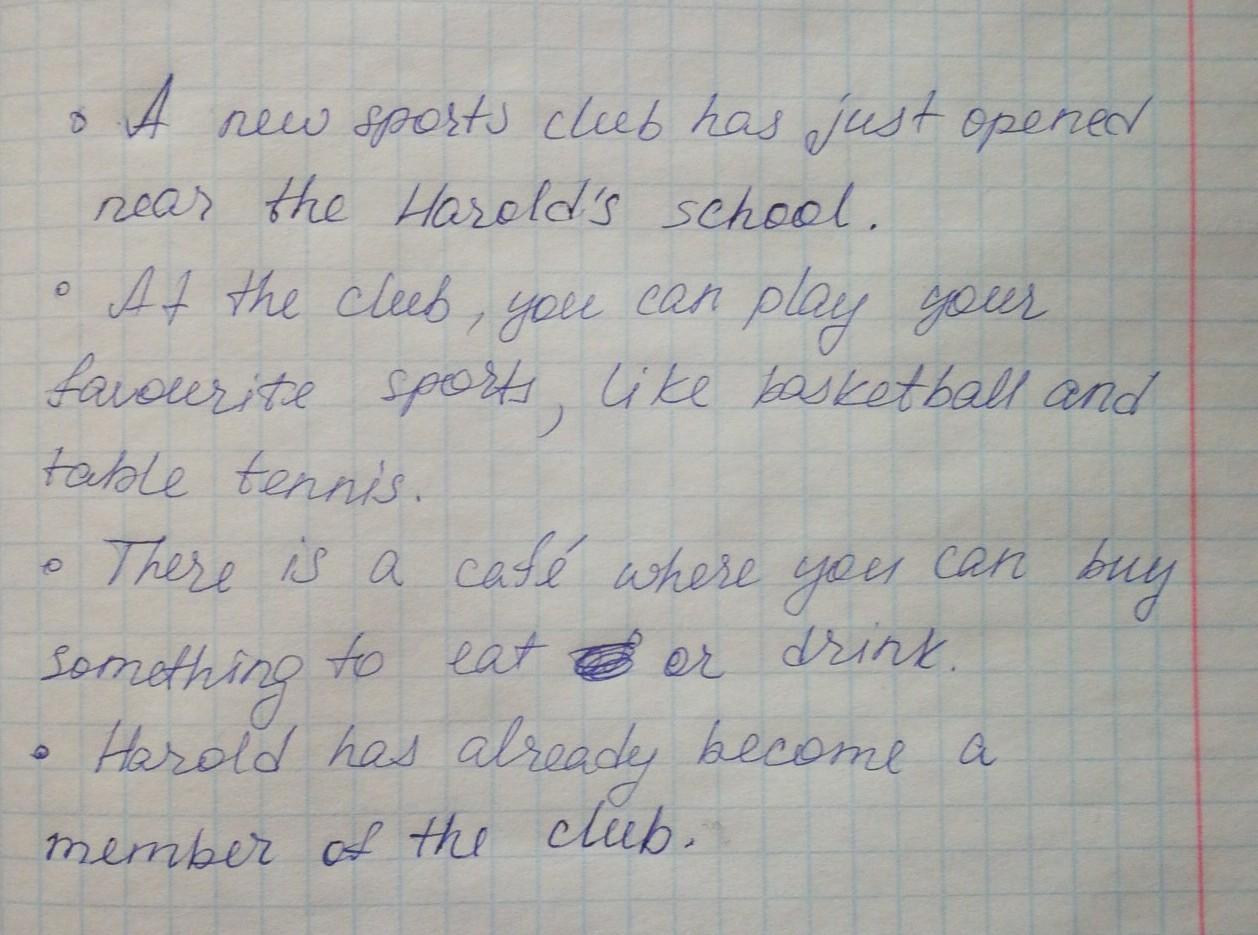 • A new sports club has just opened
near the Harold's school.
• At the club, you can play your
favourite sports, like basketball and
table tennis.
• There is a café where you can buy
something to eat or drink.
• Harold has already become a
member of the club.